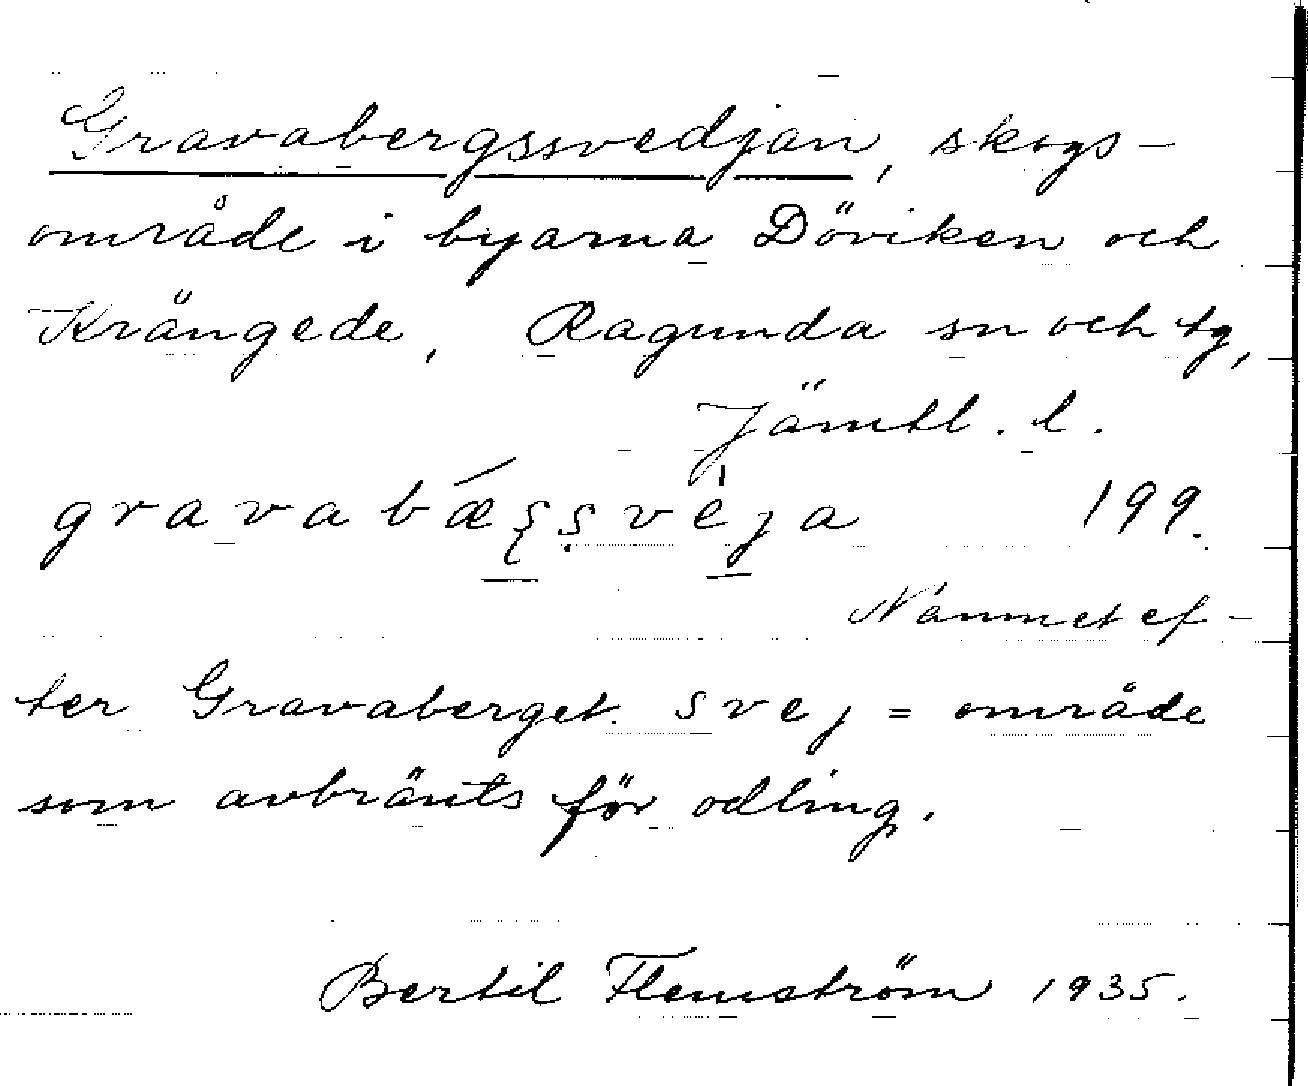 Gravabergssvedjan, skogs-
område i byarna Döviken och
Krångede, Ragunda sn och tg,
Jämtl. l.
199.
Namnet ef-
ter Gravaberget. svej = område
som avbränts för odling.
Bertil Flemström 1935.